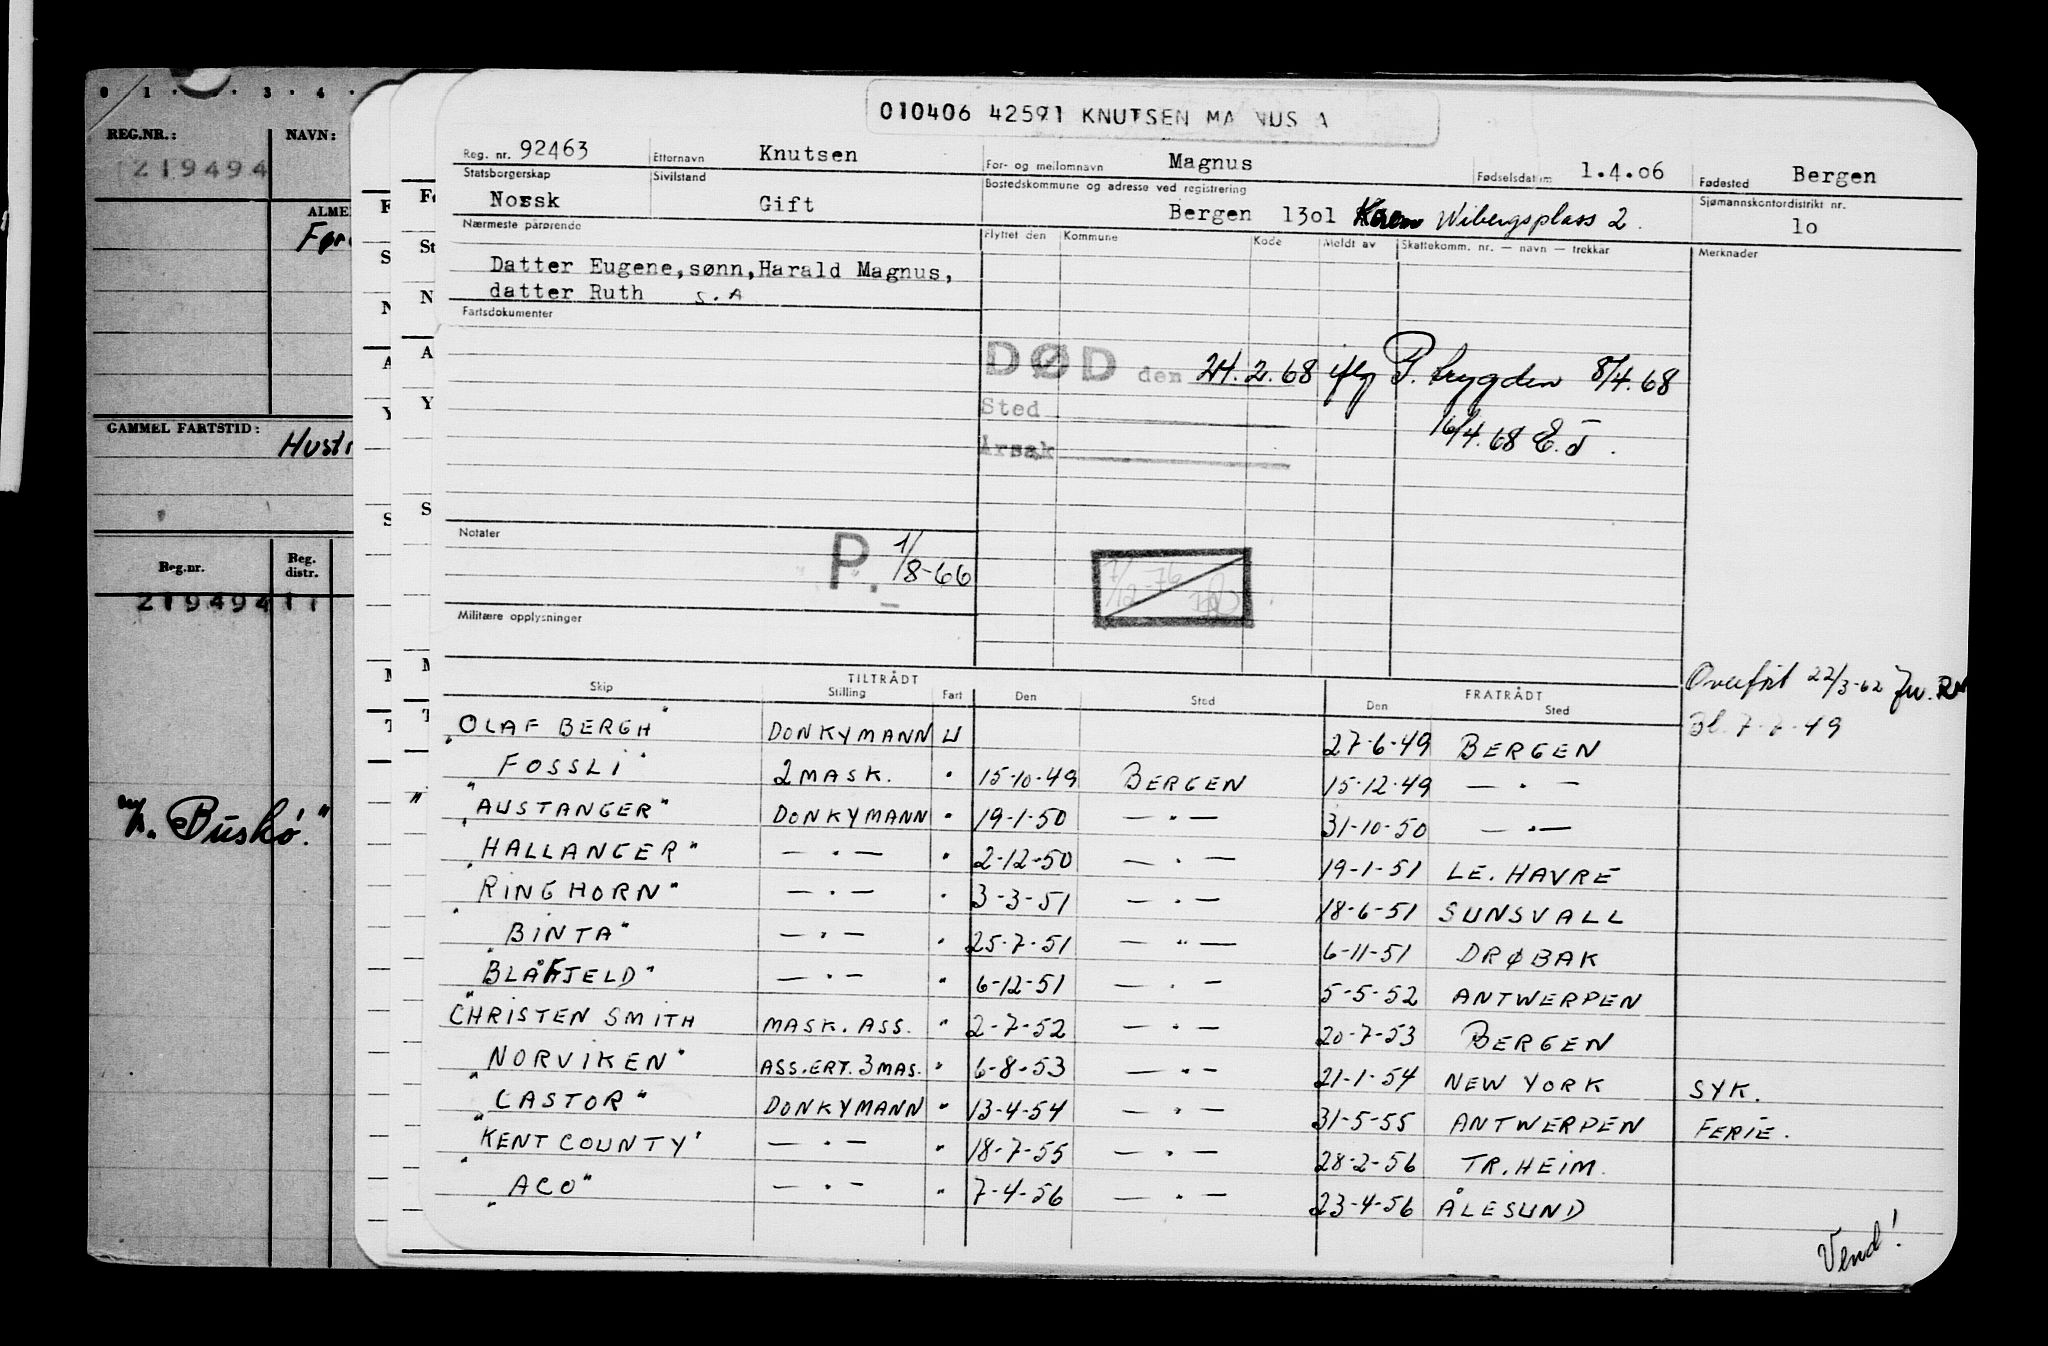 010406 42591 KNUTSEN MA NUS A
Reg. nr. 92463 Etternavn Knutsen For- og mellomnavn Magnus Fødselsdatum 1.4.06 Fødested Bergen
Statsborgerskap Norsk Sivilstand Gift Bostedskommune og adresse ved registrering Bergen 1301 Wibergsplass 2. Sjømannskontordistrikt nr. 10
Nærmeste pårørende Flyttet den Kommune Kode Meldt av Skattekomm. nr. — navn — trekkår Merknader
Datter Eugene,sønn,Harald Magnus,
datter Ruth S.A
Fartsdokumenter
DØD den 24.2.68 iflg P. trygden 8/4.68
Sted
16/4.68 E.J.
Årsak
Notater
P. 1/8-66
7/12-76
Militære opplysninger
Overført 22/3-62
TILTRÅDT FRATRÅDT
Skip Stilling Fart Den Sted Den Sted
"OLAF BERGH" DONKYMANN U 27-6-49 BERGEN
"FOSSLI" 2 MASK. " 15-10-49 BERGEN 15-12-49 — " —
"AUSTANGER" DONKYMANN " 19-1-50 — " — 31-10-50 — " —
"HALLANGER" — " — " 2-12-50 — " — 19-1-51 LE. HAVRE
"RINGHORN" — " — " 3-3-51 — " — 18-6-51 SUNSVALL
"BINTA" — " — " 25-7-51 — " — 6-11-51 DRØBAK
"BLÅFJELD" — " — " 6-12-51 — " — 5-5-52 ANTWERPEN
"CHRISTEN SMITH MASK. ASS. " 2-7-52 — " — 20-7-53 BERGEN
"NORVIKEN" ASS.ERT. 3 MAS. " 6-8-53 — " — 21-1-54 NEW YORK SYK.
"CASTOR" DONKYMANN " 13-4-54 — " — 31-5-55 ANTWERPEN FERIE.
"KENT COUNTY" — " — " 18-7-55 — " — 28-2-56 TR.HEIM.
"ACO" — " — " 7-4-56 — " — 23-4-56 ÅLESUND
Vend!
REG.NR.: NAVN:
219494
GAMMEL FARTSTID:
Reg.nr. Reg. distr.
219494 11
"Buskø."